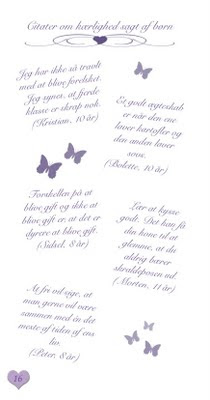 Citater om kærlighed sagt af børn
Jeg har ikke så travlt
med at blive forelsket.
Jeg synes, at fjerde
klasse er skrap nok.
(Kristian, 10 år)
Et godt ægteskab
er når den ene
laver kartofler og
den anden laver
sovs.
(Bolette, 10 år)
Forskellen på at
blive gift og ikke at
blive gift, er at det er
dyrere at blive gift.
(Sidsel, 8 år)
Lær at kysse
godt. Det kan få
din kone til at
glemme, at du
aldrig bærer
skraldeposen ud.
(Morten, 11 år)
At fri vil sige, at
man gerne vil være
sammen med én det
meste af tiden af éns
liv.
(Peter, 8 år)
16